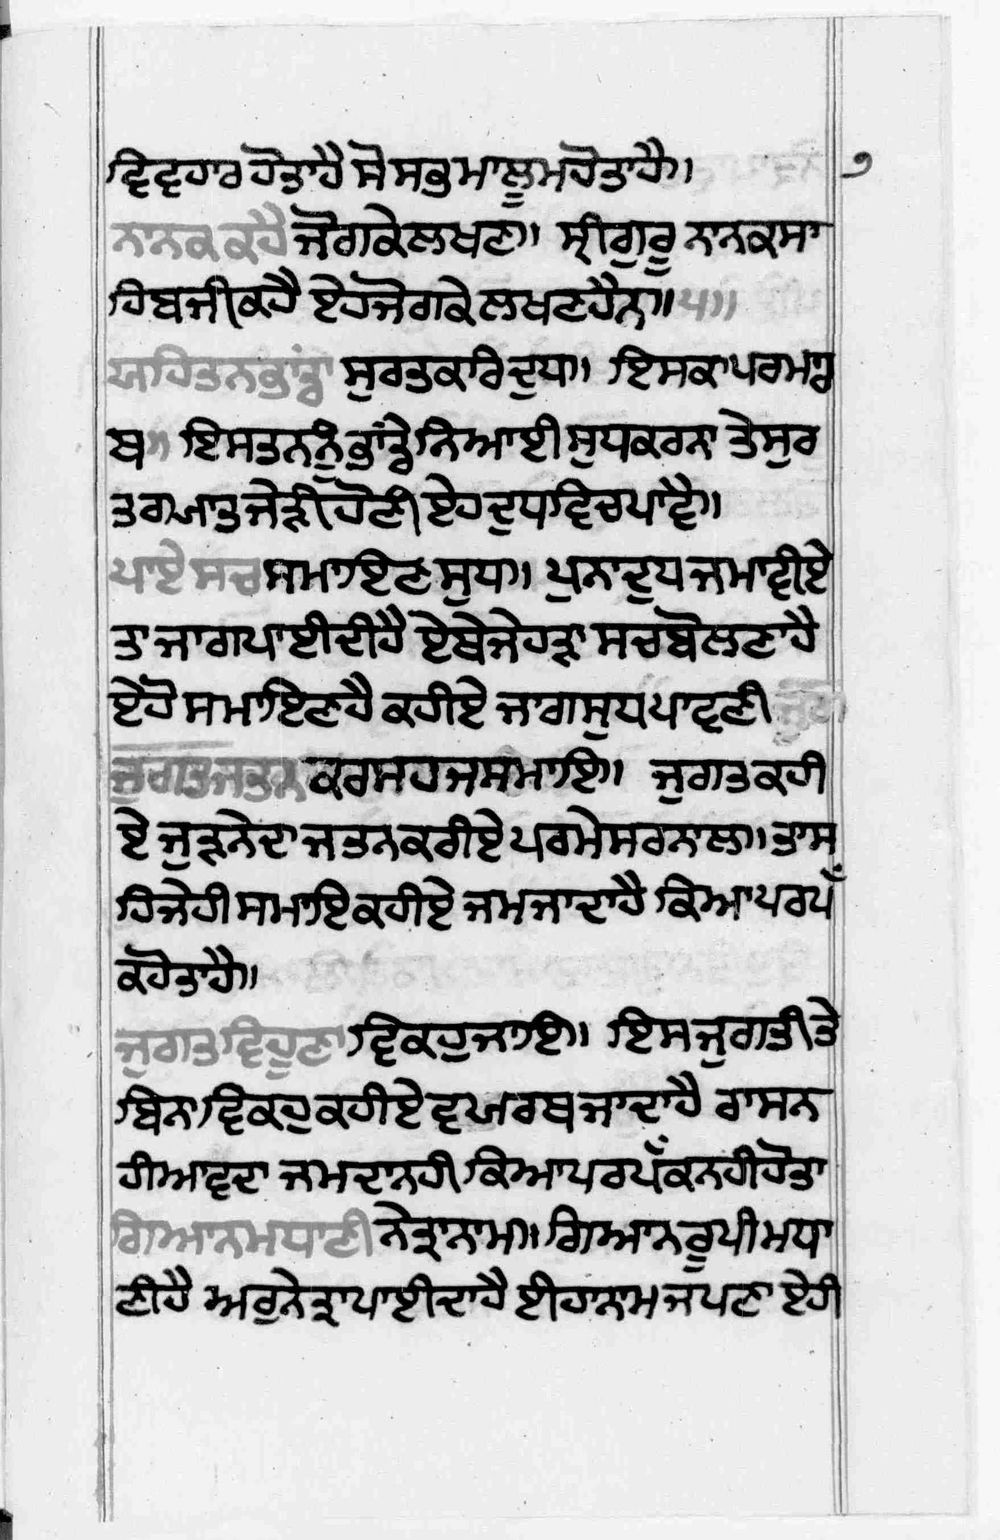 ਵਿਵਹਾਰ ਹੋਤਾ ਹੈ ਸੋ ਸਭ ਮਾਲੂਮ ਹੋਤਾ ਹੈ॥ ੭
ਨਾਨਕ ਕਹੈ ਜੋਗ ਕੇ ਲਖਣ॥ ਸ੍ਰੀ ਗੁਰੂ ਨਾਨਕ ਸਾ
ਹਿਬ ਜੀ ਕਹੈ ਏਹ ਜੋਗ ਕੇ ਲਖਣ ਹੈਨ॥੫॥
ਯਹਿ ਤਨ ਭਾਂਡਾ ਸੁਰਤ ਕਾਰਿ ਦੁਧ॥ ਇਸਕਾ ਪਰਮਾਰ
ਥ॥ ਇਸ ਤਨ ਨੂੰ ਭਾਂਡੇ ਨਿਆਈ ਸੁਧ ਕਰਨਾ ਤੇ ਸੁਰ
ਤ ਗਯਾਤ ਜੇੜੀ ਹੋਣੀ ਏਹ ਦੁਧ ਵਿਚ ਪਾਵੈ॥
ਪਾਏ ਸਚ ਸਮਾਇਣ ਸੁਧ॥ ਪੁਨਾ ਦੁਧ ਜਮਾਵੀਏ
ਤਾ ਜਾਗ ਪਾਈਦੀ ਹੈ ਏਥੇ ਜੇਹੜਾ ਸਚ ਬੋਲਣਾ ਹੈ
ਏਹੋ ਸਮਾਇਣ ਹੈ ਕਹੀਏ ਜਾਗ ਸੁਧ ਪਾਵਣੀ
ਜੁਗਤ ਜਤਨ ਕਰ ਸਹਜ ਸਮਾਇ॥ ਜੁਗਤ ਕਹੀ
ਏ ਜੁੜਨੇ ਦਾ ਜਤਨ ਕਰੀਏ ਪਰਮੇਸਰ ਨਾਲ॥ ਤਾ ਸ
ਹਿਜੇ ਹੀ ਸਮਾਇ ਕਹੀਏ ਜਮ ਜਾਦਾ ਹੈ ਕਿਆ ਪਰਪੱ
ਕ ਹੋਤਾ ਹੈ॥
ਜੁਗਤ ਵਿਹੂਣਾ ਵਿਕਹੁ ਜਾਇ॥ ਇਸ ਜੁਗਤੀ ਤੇ
ਬਿਨਾ ਵਿਕਹੁ ਕਹੀਏ ਵਯਰਥ ਜਾਦਾ ਹੈ ਰਾਸ ਨ
ਹੀ ਆਵਦਾ ਜਮਦਾ ਨਹੀ ਕਿਆ ਪਰਪੱਕ ਨਹੀ ਹੋਤਾ
ਗਿਆਨ ਮਧਾਣੀ ਨੇਤ੍ਰਾ ਨਾਮ॥ ਗਿਆਨ ਰੂਪੀ ਮਧਾ
ਣੀ ਹੈ ਅਰੁ ਨੇਤ੍ਰਾ ਪਾਈਦਾ ਹੈ ਈਹਾ ਨਾਮ ਜਪਣਾ ਏਹੀ